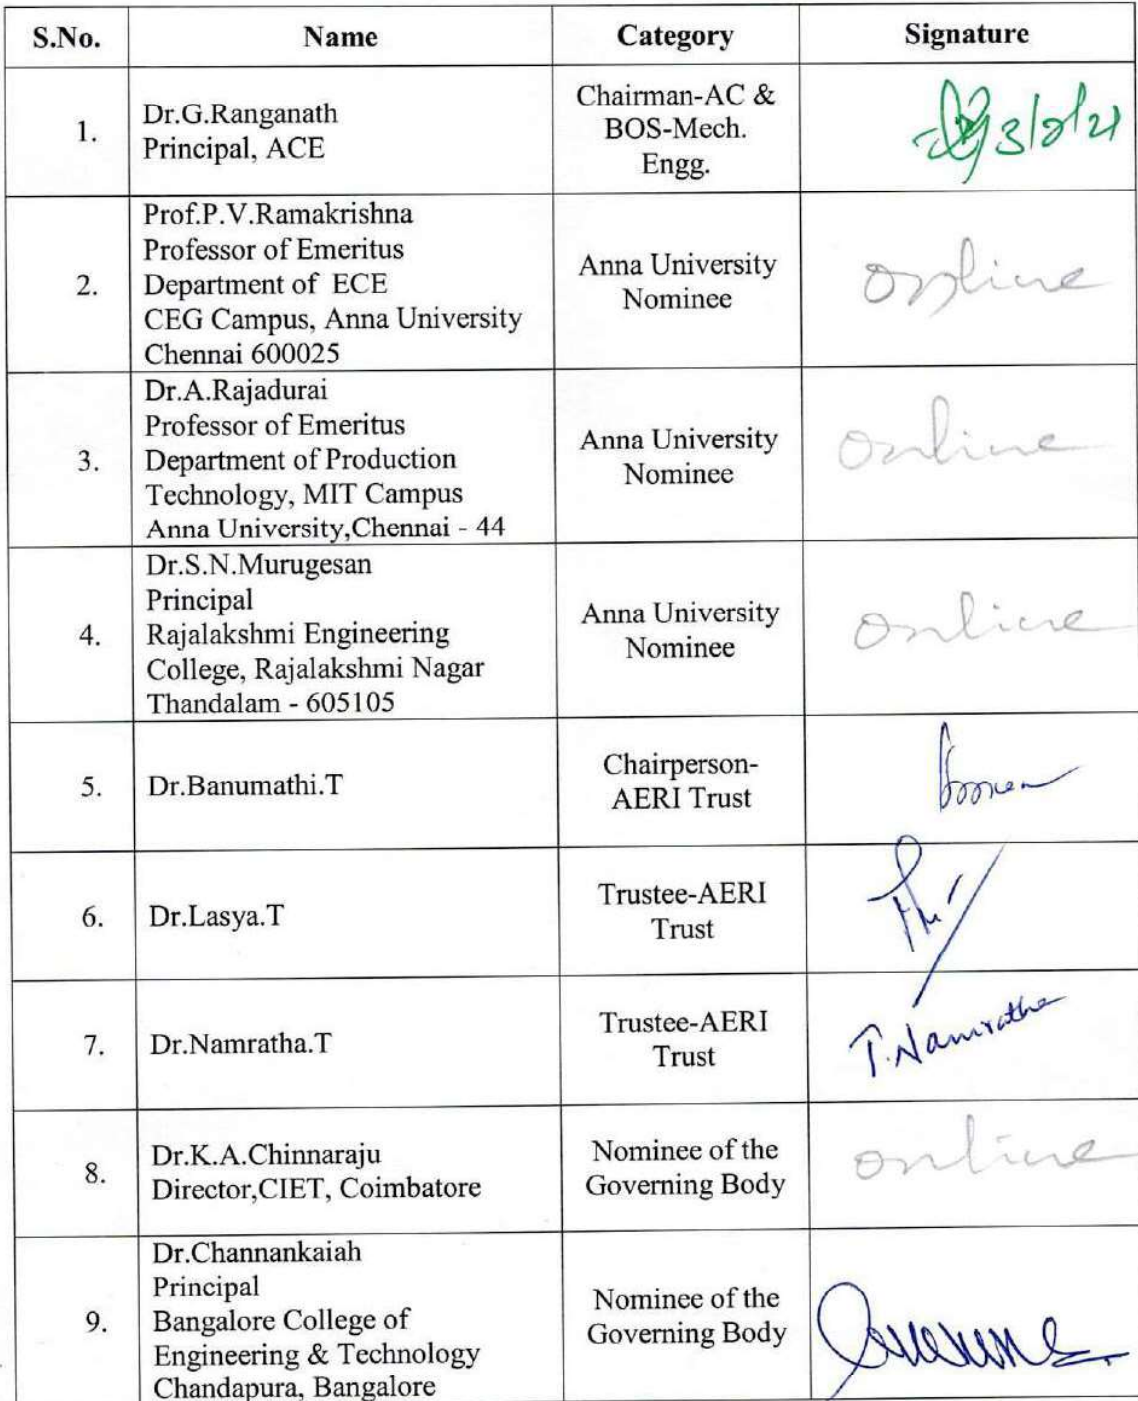 S.No. Name Category Signature
1. Dr.G.Ranganath
Principal, ACE
Chairman-AC &
BOS-Mech.
Engg.
3/2/21
2. Prof.P.V.Ramakrishna
Professor of Emeritus
Department of ECE
CEG Campus, Anna University
Chennai 600025
Anna University
Nominee
Online
3. Dr.A.Rajadurai
Professor of Emeritus
Department of Production
Technology, MIT Campus
Anna University,Chennai - 44
Anna University
Nominee
Online
4. Dr.S.N.Murugesan
Principal
Rajalakshmi Engineering
College, Rajalakshmi Nagar
Thandalam - 605105
Anna University
Nominee
Online
5. Dr.Banumathi.T
Chairperson-
AERI Trust
6. Dr.Lasya.T
Trustee-AERI
Trust
7. Dr.Namratha.T
Trustee-AERI
Trust
T.Namratha
8. Dr.K.A.Chinnaraju
Director,CIET, Coimbatore
Nominee of the
Governing Body
online
9. Dr.Channankaiah
Principal
Bangalore College of
Engineering & Technology
Chandapura, Bangalore
Nominee of the
Governing Body